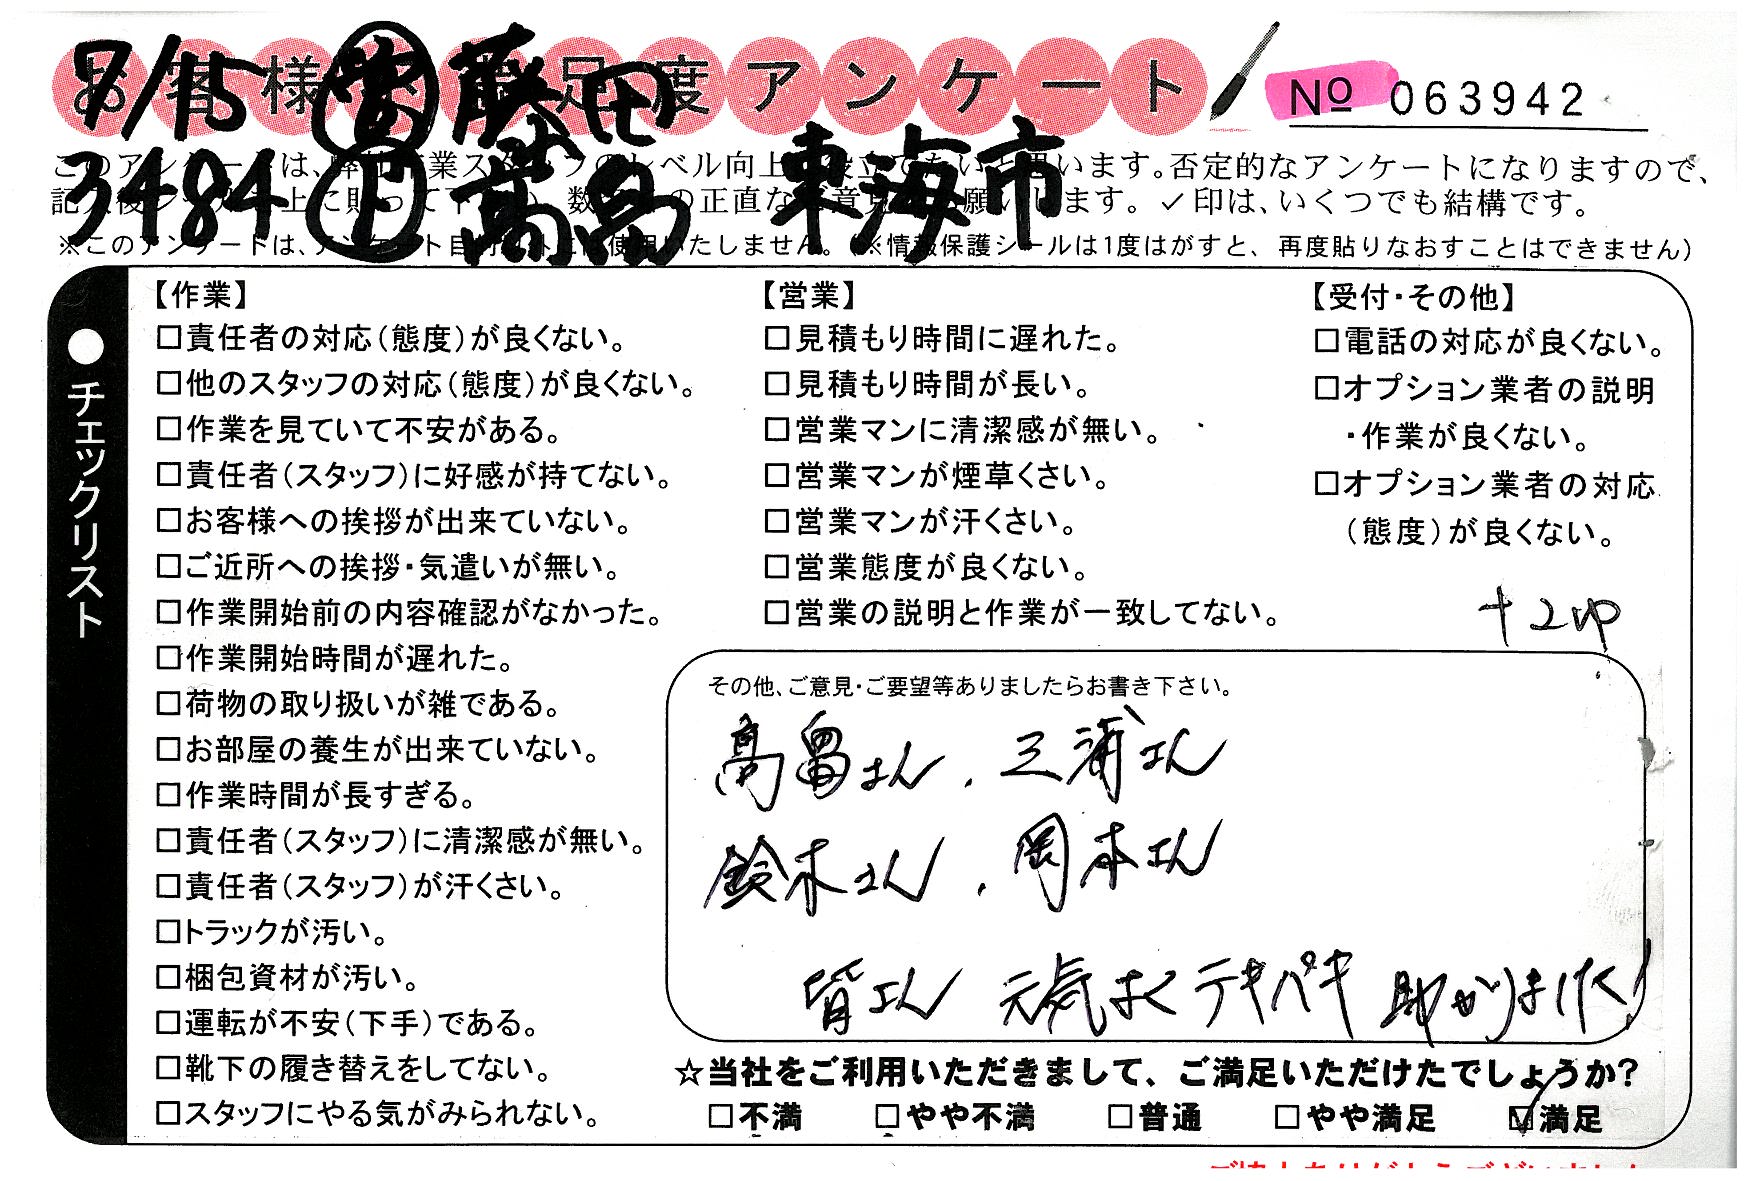 お客様満足度アンケート
No 063942
7/15 営 藤田
3484 作 高畠 東海市
このアンケートは、弊社作業スタッフのレベル向上に役立てたいと思います。否定的なアンケートになりますので、
の正直なご意見 します。✓印は、いくつでも結構です。
※このアンケートは、アンケート目的以外には使用いたしません。(※情報保護シールは1度はがすと、再度貼りなおすことはできません)
●チェックリスト
【作業】
□責任者の対応(態度)が良くない。
□他のスタッフの対応(態度)が良くない。
□作業を見ていて不安がある。
□責任者(スタッフ)に好感が持てない。
□お客様への挨拶が出来ていない。
□ご近所への挨拶・気遣いが無い。
□作業開始前の内容確認がなかった。
□作業開始時間が遅れた。
□荷物の取り扱いが雑である。
□お部屋の養生が出来ていない。
□作業時間が長すぎる。
□責任者(スタッフ)に清潔感が無い。
□責任者(スタッフ)が汗くさい。
□トラックが汚い。
□梱包資材が汚い。
□運転が不安(下手)である。
□靴下の履き替えをしてない。
□スタッフにやる気がみられない。
【営業】
□見積もり時間に遅れた。
□見積もり時間が長い。
□営業マンに清潔感が無い。
□営業マンが煙草くさい。
□営業マンが汗くさい。
□営業態度が良くない。
□営業の説明と作業が一致してない。
【受付・その他】
□電話の対応が良くない。
□オプション業者の説明
・作業が良くない。
□オプション業者の対応
(態度)が良くない。
+2up
その他、ご意見・ご要望等ありましたらお書き下さい。
高畠さん、三浦さん
鈴木さん、岡本さん
皆さん 元気よくテキパキ 助かりました!
☆当社をご利用いただきまして、ご満足いただけたでしょうか?
□不満 □やや不満 □普通 □やや満足 ☑満足